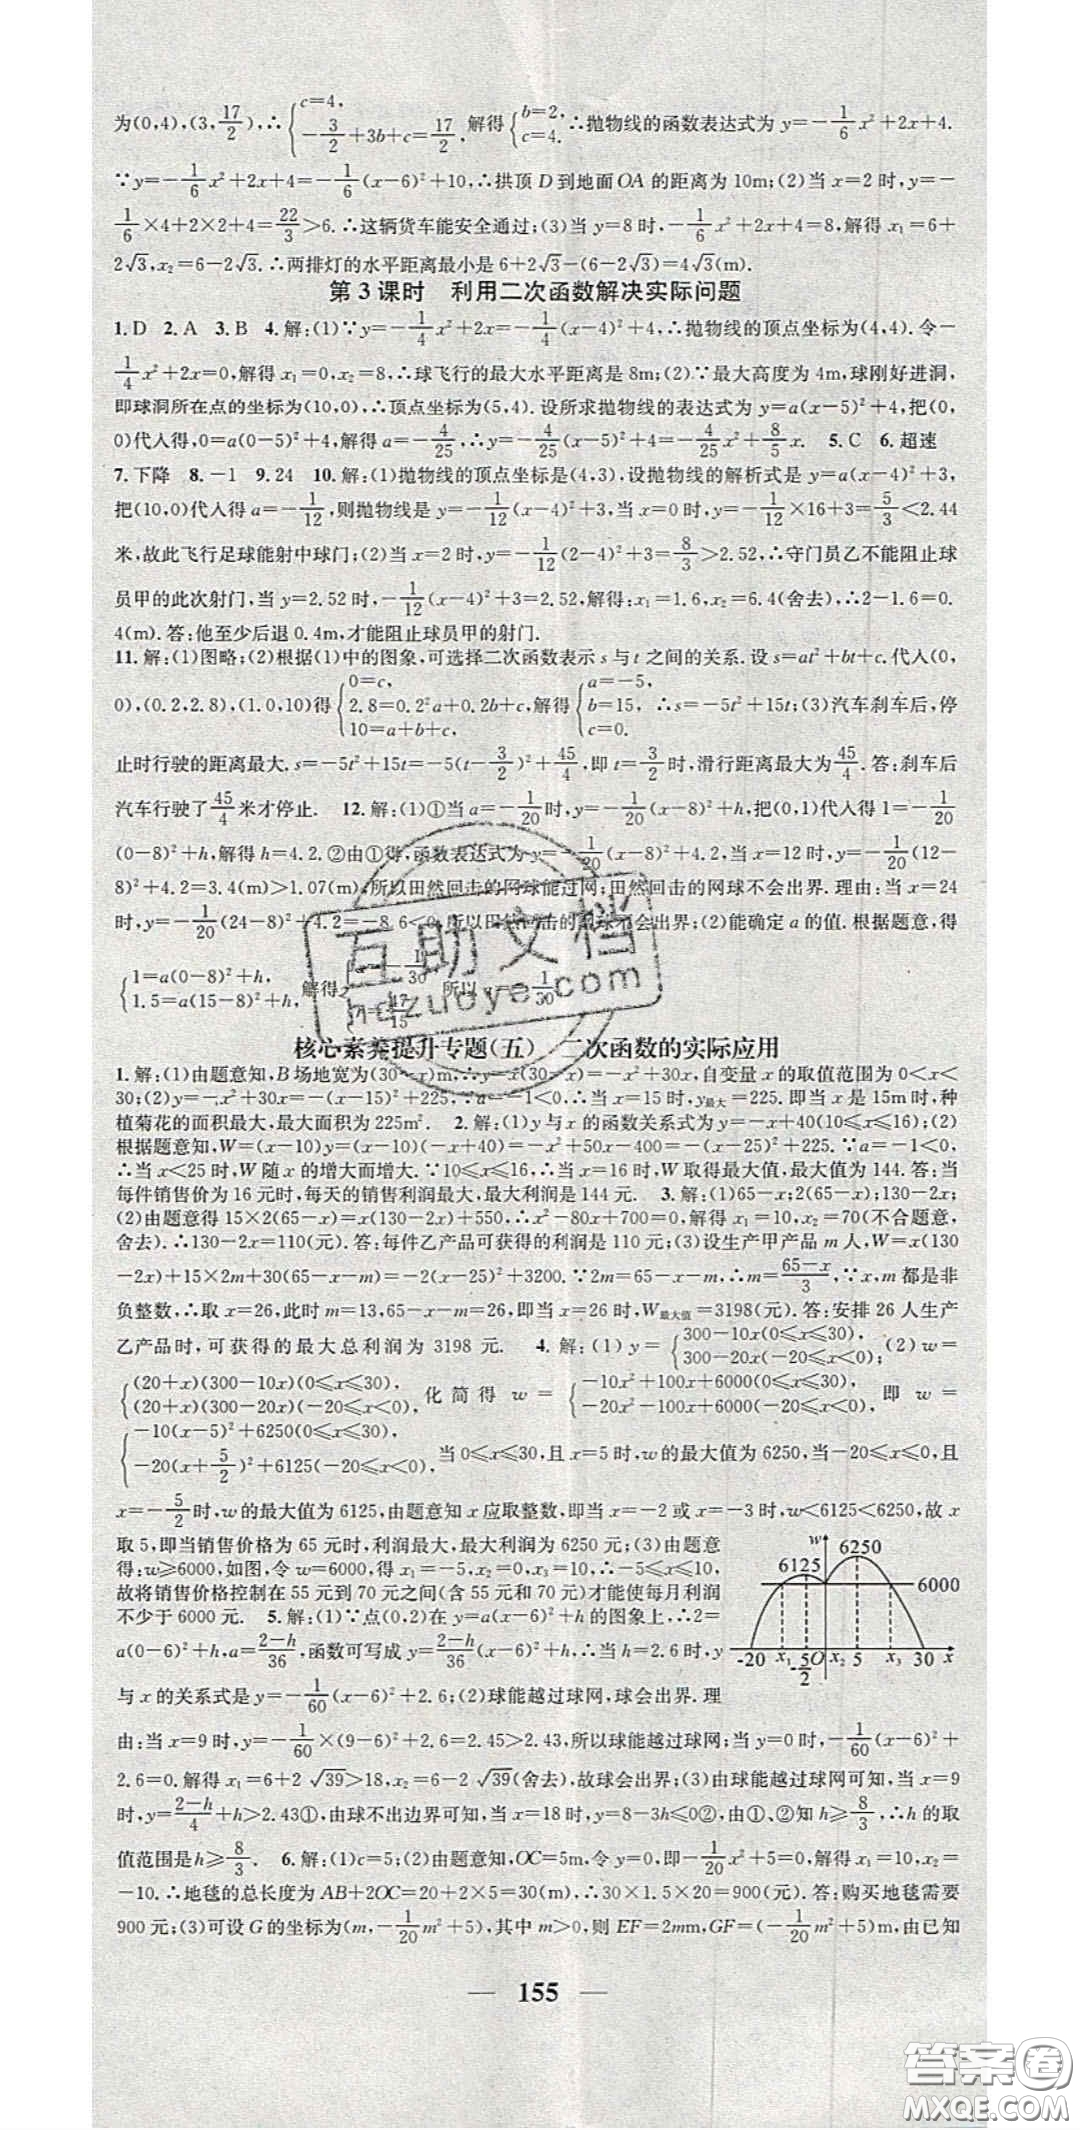 为(0,4),(3,17/2),∴{c=4, -3/2+3b+c=17/2, 解得{b=2, c=4. ∴抛物线的函数表达式为 y=-1/6x²+2x+4.
∵y=-1/6x²+2x+4=-1/6(x-6)²+10,∴拱顶 D 到地面 OA 的距离为 10m;(2)当 x=2 时,y=-
1/6×4+2×2+4=22/3>6.∴这辆货车能安全通过;(3)当 y=8 时,-1/6x²+2x+4=8,解得 x₁=6+
2√3,x₂=6-2√3.∴两排灯的水平距离最小是 6+2√3-(6-2√3)=4√3(m).
第 3 课时 利用二次函数解决实际问题
1.D 2.A 3.B 4.解:(1)∵y=-1/4x²+2x=-1/4(x-4)²+4,∴抛物线的顶点坐标为(4,4).令-
1/4x²+2x=0,解得 x₁=0,x₂=8,∴球飞行的最大水平距离是 8m;(2)∵最大高度为 4m,球刚好进洞,
即球洞所在点的坐标为(10,0),∴顶点坐标为(5,4).设所求抛物线的表达式为 y=a(x-5)²+4,把(0,
0)代人得,0=a(0-5)²+4,解得 a=-4/25,∴y=-4/25(x-5)²+4=-4/25x²+8/5x. 5.C 6.超速
7.下降 8.-1 9.24 10.解:(1)抛物线的顶点坐标是(4,3),设抛物线的解析式是 y=a(x-4)²+3,
把(10,0)代人得 a=-1/12,则抛物线是 y=-1/12(x-4)²+3,当 x=0 时,y=-1/12×16+3=5/3<2.44
米,故此飞行足球能射中球门;(2)当 x=2 时,y=-1/12(2-4)²+3=8/3>2.52,∴守门员乙不能阻止球
员甲的此次射门,当 y=2.52时,-1/12(x-4)²+3=2.52,解得:x₁=1.6,x₂=6.4(舍去),∴2-1.6=0.
4(m).答:他至少后退 0.4m,才能阻止球员甲的射门.
11.解:(1)图略;(2)根据(1)中的图象,可选择二次函数表示 s 与 t 之间的关系.设 s=at²+bt+c.代人(0,
0),(0.2,2.8),(1.0,10)得{0=c, 2.8=0.2²a+0.2b+c, 10=a+b+c, 解得{a=-5, b=15, c=0. ∴s=-5t²+15t;(3)汽车刹车后,停
止时行驶的距离最大.s=-5t²+15t=-5(t-3/2)²+45/4,即 t=3/2时,滑行距离最大为45/4.答:刹车后
汽车行驶了45/4米才停止. 12.解:(1)①当 a=-1/20时,y=-1/20(x-8)²+h,把(0,1)代人得 1=-1/20
(0-8)²+h,解得 h=4.2.②由①得,函数表达式为 y=-1/20(x-8)²+4.2,当 x=12 时,y=-1/20(12-
8)²+4.2=3.4(m)>1.07(m),所以田然回击的网球能过网;田然回击的网球不会出界.理由:当 x=24
时,y=-1/20(24-8)²+4.2=-8.6<0,所以田然回击的网球不会出界;(2)能确定 a 的值.根据题意,得
{1=a(0-8)²+h, 1.5=a(15-8)²+h, 解得 所以
核心素养提升专题(五) 二次函数的实际应用
1.解:(1)由题意知,B 场地宽为(30-x)m,∴y=x(30-x)=-x²+30x,自变量 x 的取值范围为 0<x<
30;(2)y=-x²+30x=-(x-15)²+225,∵a=-1<0,∴当 x=15 时,y最大=225.即当 x 是 15m时,种
植菊花的面积最大,最大面积为 225m². 2.解:(1)y 与 x 的函数关系式为 y=-x+40(10≤x≤16);(2)
根据题意知,W=(x-10)y=(x-10)(-x+40)=-x²+50x-400=-(x-25)²+225.∵a=-1<0,
∴当 x<25 时,W 随 x 的增大而增大.∵10≤x≤16,∴当 x=16 时,W 取得最大值,最大值为 144.答:当
每件销售价为 16 元时,每天的销售利润最大,最大利润是 144 元. 3.解:(1)65-x;2(65-x);130-2x;
(2)由题意得 15×2(65-x)=x(130-2x)+550,∴x²-80x+700=0,解得 x₁=10,x₂=70(不合题意,
舍去).∴130-2x=110(元).答:每件乙产品可获得的利润是 110 元;(3)设生产甲产品 m 人,W=x(130
-2x)+15×2m+30(65-x-m)=-2(x-25)²+3200.∵2m=65-x-m,∴m=65-x/3,∵x,m 都是非
负整数,∴取 x=26,此时 m=13,65-x-m=26,即当 x=26 时,W最大值=3198(元).答:安排 26 人生产
乙产品时,可获得的最大总利润为 3198 元. 4.解:(1)y={300-10x(0≤x≤30), 300-20x(-20≤x<0); (2)w=
{(20+x)(300-10x)(0≤x≤30), (20+x)(300-20x)(-20≤x<0), 化简得 w={-10x²+100x+6000(0≤x≤30), -20x²-100x+6000(-20≤x<0), 即 w=
{-10(x-5)²+6250(0≤x≤30), -20(x+5/2)²+6125(-20≤x<0), 当 0≤x≤30,且 x=5 时,w的最大值为 6250,当-20≤x≤0,且
x=-5/2时,w 的最大值为 6125,由题意知 x 应取整数,即当 x=-2 或 x=-3 时,w<6125<6250,故 x
取 5,即当销售价格为 65 元时,利润最大,最大利润为 6250 元;(3)由题意
得:w≥6000,如图,令 w=6000,得 x₁=-5,x₂=0,x₃=10,∴-5≤x≤10,
故将销售价格控制在 55 元到 70 元之间(含 55 元和 70 元)才能使每月利润
不少于 6000 元. 5.解:(1)∵点(0,2)在 y=a(x-6)²+h 的图象上,∴2=
a(0-6)²+h,a=2-h/36,函数可写成 y=2-h/36(x-6)²+h,∴当 h=2.6时,y
与 x 的关系式是 y=-1/60(x-6)²+2.6;(2)球能越过球网,球会出界.理
w
6250
6125
6000
-20 x₁ -5/2 O x₂ 5 x₃ 30 x
由:当 x=9 时,y=-1/60×(9-6)²+2.6=2.45>2.43,所以球能越过球网;当 y=0 时,-1/60(x-6)²+
2.6=0.解得 x₁=6+2√39>18,x₂=6-2√39(舍去),故球会出界;(3)由球能越过球网可知,当 x=9
时,y=2-h/4+h>2.43①,由球不出边界可知,当 x=18 时,y=8-3h≤0②,由①、②知 h≥8/3,∴h 的取
值范围是h≥8/3. 6.解:(1)c=5;(2)由题意知,OC=5m,令 y=0,即-1/20x²+5=0,解得 x₁=10,x₂=
-10.∴地毯的总长度为 AB+2OC=20+2×5=30(m),∴30×1.5×20=900(元).答:购买地毯需要
900 元;(3)可设 G 的坐标为(m,-1/20m²+5),其中 m>0,则 EF=2mm,GF=(-1/20m²+5)m,由已知
155
互助文档
hdzuoye.com
答案卷
MXQE.COM